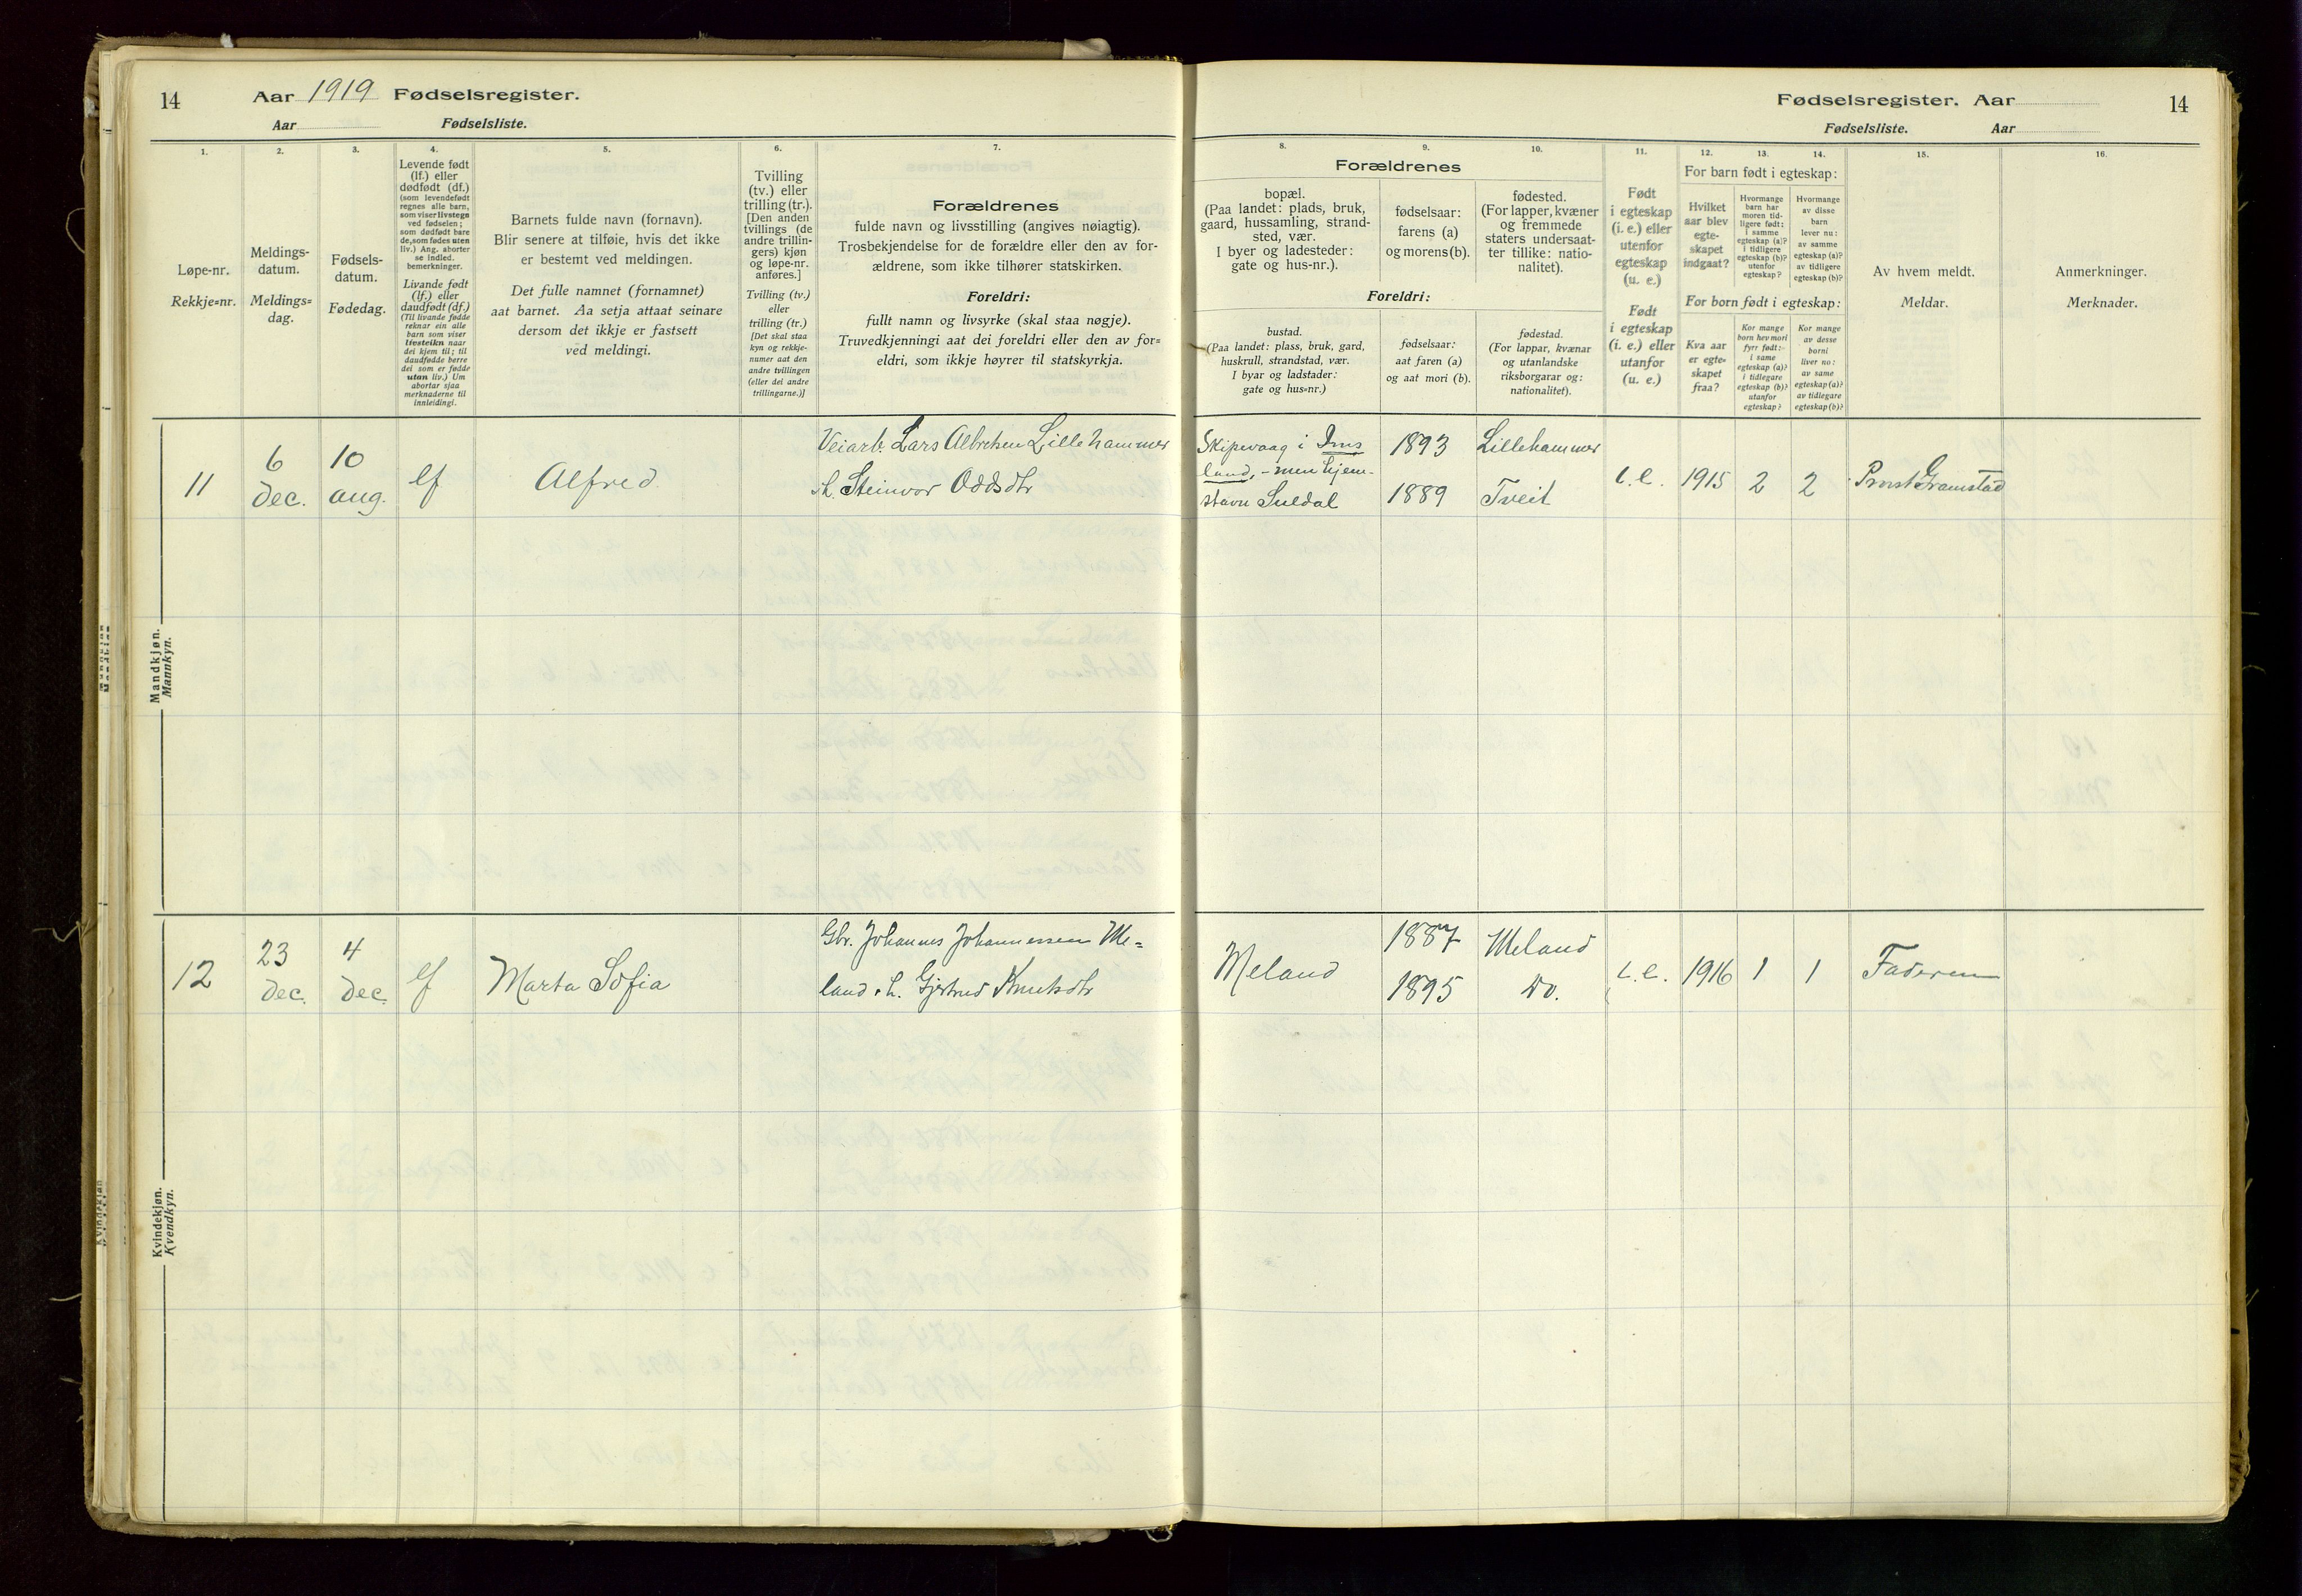 14
Aar 1919 Fødselsregister.
Aar Fødselsliste.
Fødselsregister. Aar
Fødselsliste. Aar
14
1.
Løpe-nr.
Rekkje=nr.
2.
Meldings-
datum.
Meldings=
dag.
3.
Fødsels-
datum.
Fødedag.
4.
Levende født
(lf.) eller
dødfødt (df.)
(som levendefødt
regnes alle barn,
som viser livstegn
ved fødselen;
som dødfødt bare
de, som fødes uten
liv.) Ang. aborter
se indled.
bemerkninger.
Livande født
(lf.) eller
daudfødt (df.)
(Til livande fødde
reknar ein alle
barn som viser
livsteikn naar
dei kjem til; til
daudfødde berre
dei som er fødde
utan liv.) Um
abortar sjaa
merknaderne til
innleidingi.
5.
Barnets fulde navn (fornavn).
Blir senere at tilføie, hvis det ikke
er bestemt ved meldingen.
Det fulle namnet (fornamnet)
aat barnet. Aa setja attaat seinare
dersom det ikkje er fastsett
ved meldingi.
6.
Tvilling
(tv.) eller
trilling (tr.).
[Den anden
tvillings (de
andre trillin-
gers) kjøn
og løpe-nr.
anføres.]
Tvilling (tv.)
eller
trilling (tr.)
[Det skal staa
kyn og rekkje-
numer aat den
andre tvillingen
(eller dei andre
trillingarne.)]
7.
Forældrenes
fulde navn og livsstilling (angives nøiagtig).
Trosbekjendelse for de forældre eller den av for-
ældrene, som ikke tilhører statskirken.
Foreldri:
fullt namn og livsyrke (skal staa nøgje).
Truvedkjenningi aat dei foreldri eller den av for=
eldri, som ikkje høyrer til statskyrkja.
Forældrenes
8.
bopæl.
(Paa landet: plads, bruk,
gaard, hussamling, strand-
sted, vær.
I byer og ladesteder:
gate og hus-nr.).
9.
fødselsaar:
farens (a)
og morens (b).
10.
fødested.
(For lapper, kvæner
og fremmede
staters undersaat-
ter tillike: natio-
nalitet).
Foreldri:
bustad.
(Paa landet: plass, bruk, gard,
huskrull, strandstad, vær.
I byar og ladstader:
gate og hus-nr.)
fødselsaar:
aat faren (a)
og aat mori (b).
fødestad.
(For lappar, kvænar
og utanlandske
riksborgarar og:
nationalitet).
11.
Født
i egteskap
(i. e.) eller
utenfor
egteskap
(u. e.)
Født
i egteskap
(i. e.) eller
utanfor
(u. e.)
For barn født i egteskap:
12.
Hvilket
aar blev
egte-
skapet
indgaat?
13.
Hvormange
barn har
moren tid-
ligere født:
i samme
egteskap (a)?
i tidligere
egteskap (b)?
utenfor
egteskap?
14.
Hvormange
av disse
barn
lever nu:
av samme
egteskap (a)?
av tidligere
egteskap (b)?
For born født i egteskap:
Kva aar
er egte-
skapet
fraa?
Kor mange
born hev mori
fyrr født:
i same
egteskap (a)?
i tidlegare
egteskap (b)?
utanfor
egteskap?
Kor mange
av desse
borni
liver no:
av same
egteskap (a)?
av tidlegare
egteskap (b)?
15.
Av hvem meldt.
Meldar.
16.
Anmerkninger.
Merknader.
Mandkjøn.
Mannkyn.
11
6
Dec.
10
aug.
lf
Alfred
Veiarb. Lars Albretsen Lillehammer
.h. Steinvor Oddsdtr
Skipevaag i Ims
land, - men hjem-
stavn Suldal
1893
1889
Lillehammer
Tveit
i.e.
1915
2
2
Prost Gramstad
Kvindekjøn.
Kvendkyn.
12
23
Dec.
4
Dec.
lf
Marta Sofia
Gbr. Johannes Johannessen Me=
land .h. Gjertrud Knutsdtr
Meland
1887
1895
Meland
Do.
i.e.
1916
1
1
Faderen